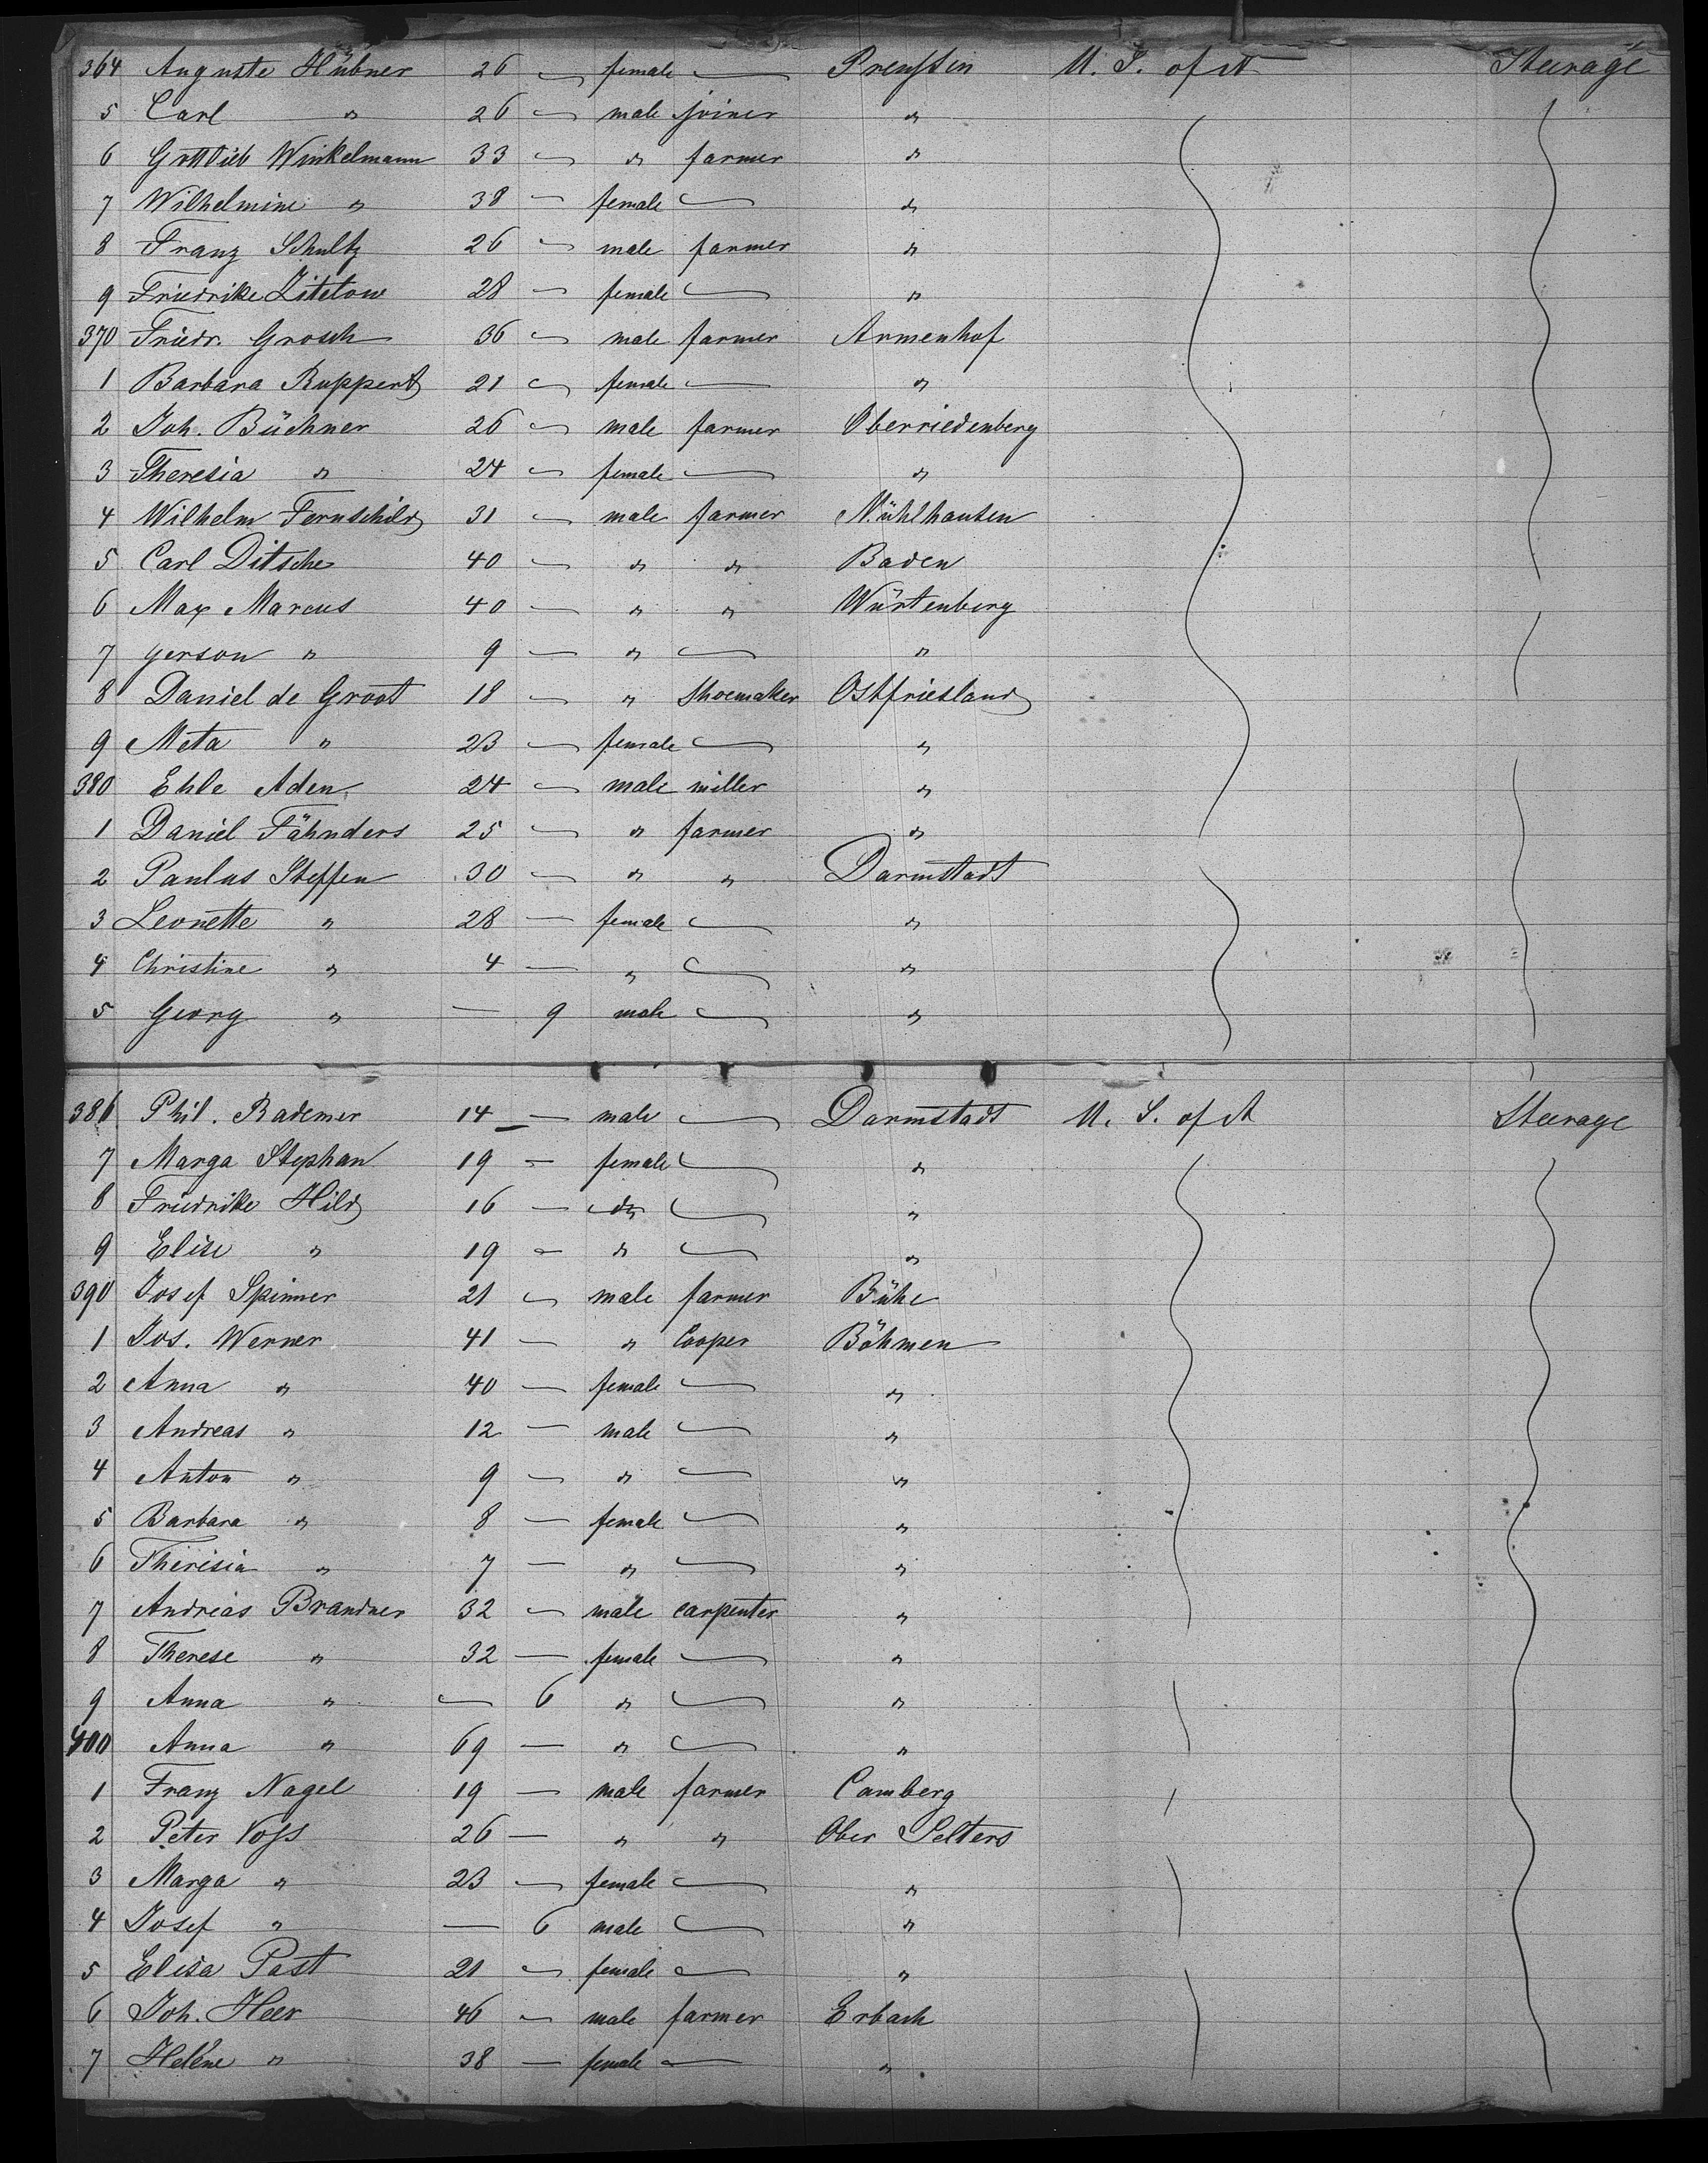 364 Auguste Hübner 26 — female — Preussen U. S. of A Steerage
5 Carl " 26 — male joiner "
6 Gottlieb Winkelmann 33 — " farmer "
7 Wilhelmine " 38 — female — "
8 Franz Schultz 26 — male farmer "
9 Friedrike Zitelow 28 — female — "
370 Friedr. Grosch 36 — male farmer Armenhof
1 Barbara Ruppert 21 — female — "
2 Joh. Büchner 26 — male farmer Oberriedenberg
3 Theresia " 24 — female — "
4 Wilhelm Fernschild 31 — male farmer Mühlhausen
5 Carl Ditsche 40 — " " Baden
6 Max Marcus 40 — " " Würtenberg
7 Gerson " 9 — " — "
8 Daniel de Groot 18 — " Shoemaker Ostfriesland
9 Meta " 23 — female — "
380 Ehle Aden 24 — male miller "
1 Daniel Fähnders 25 — " farmer "
2 Paulus Steffen 30 — " " Darmstadt
3 Leonette " 28 — female — "
4 Christine " 4 — " — "
5 Georg " — 9 male — "
386 Phil. Bademer 14 — male — Darmstadt U. S. of A Steerage
7 Marga Stephan 19 — female — "
8 Friedrike Hild 16 — do — "
9 Elise " 19 — " — "
390 Josef Spinner 21 — male farmer Bühl
1 Jos. Werner 41 — " Cooper Böhmen
2 Anna " 40 — female — "
3 Andreas " 12 — male — "
4 Anton " 9 — " — "
5 Barbara " 8 — female — "
6 Therisia " 7 — " — "
7 Andreas Brandner 32 — male carpenter "
8 Therese " 32 — female — "
9 Anna " — 6 " — "
400 Anna " 69 — " — "
1 Franz Nagel 19 — male farmer Camberg
2 Peter Voss 26 — " " Ober Selters
3 Marga " 23 — female — "
4 Josef " — 6 male — "
5 Elisa Past 21 — female — "
6 Joh. Heer 46 — male farmer Erbach
7 Helene " 38 — female — "